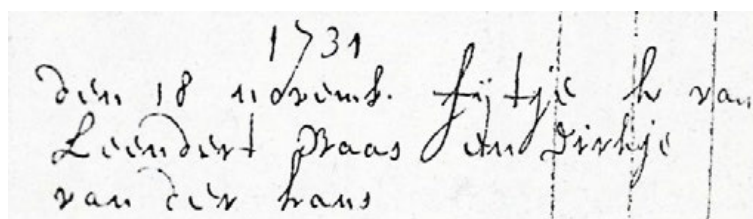 1731
den 18 novemb. fijtje k van
Leendert Maas en Dirkje
van der hans